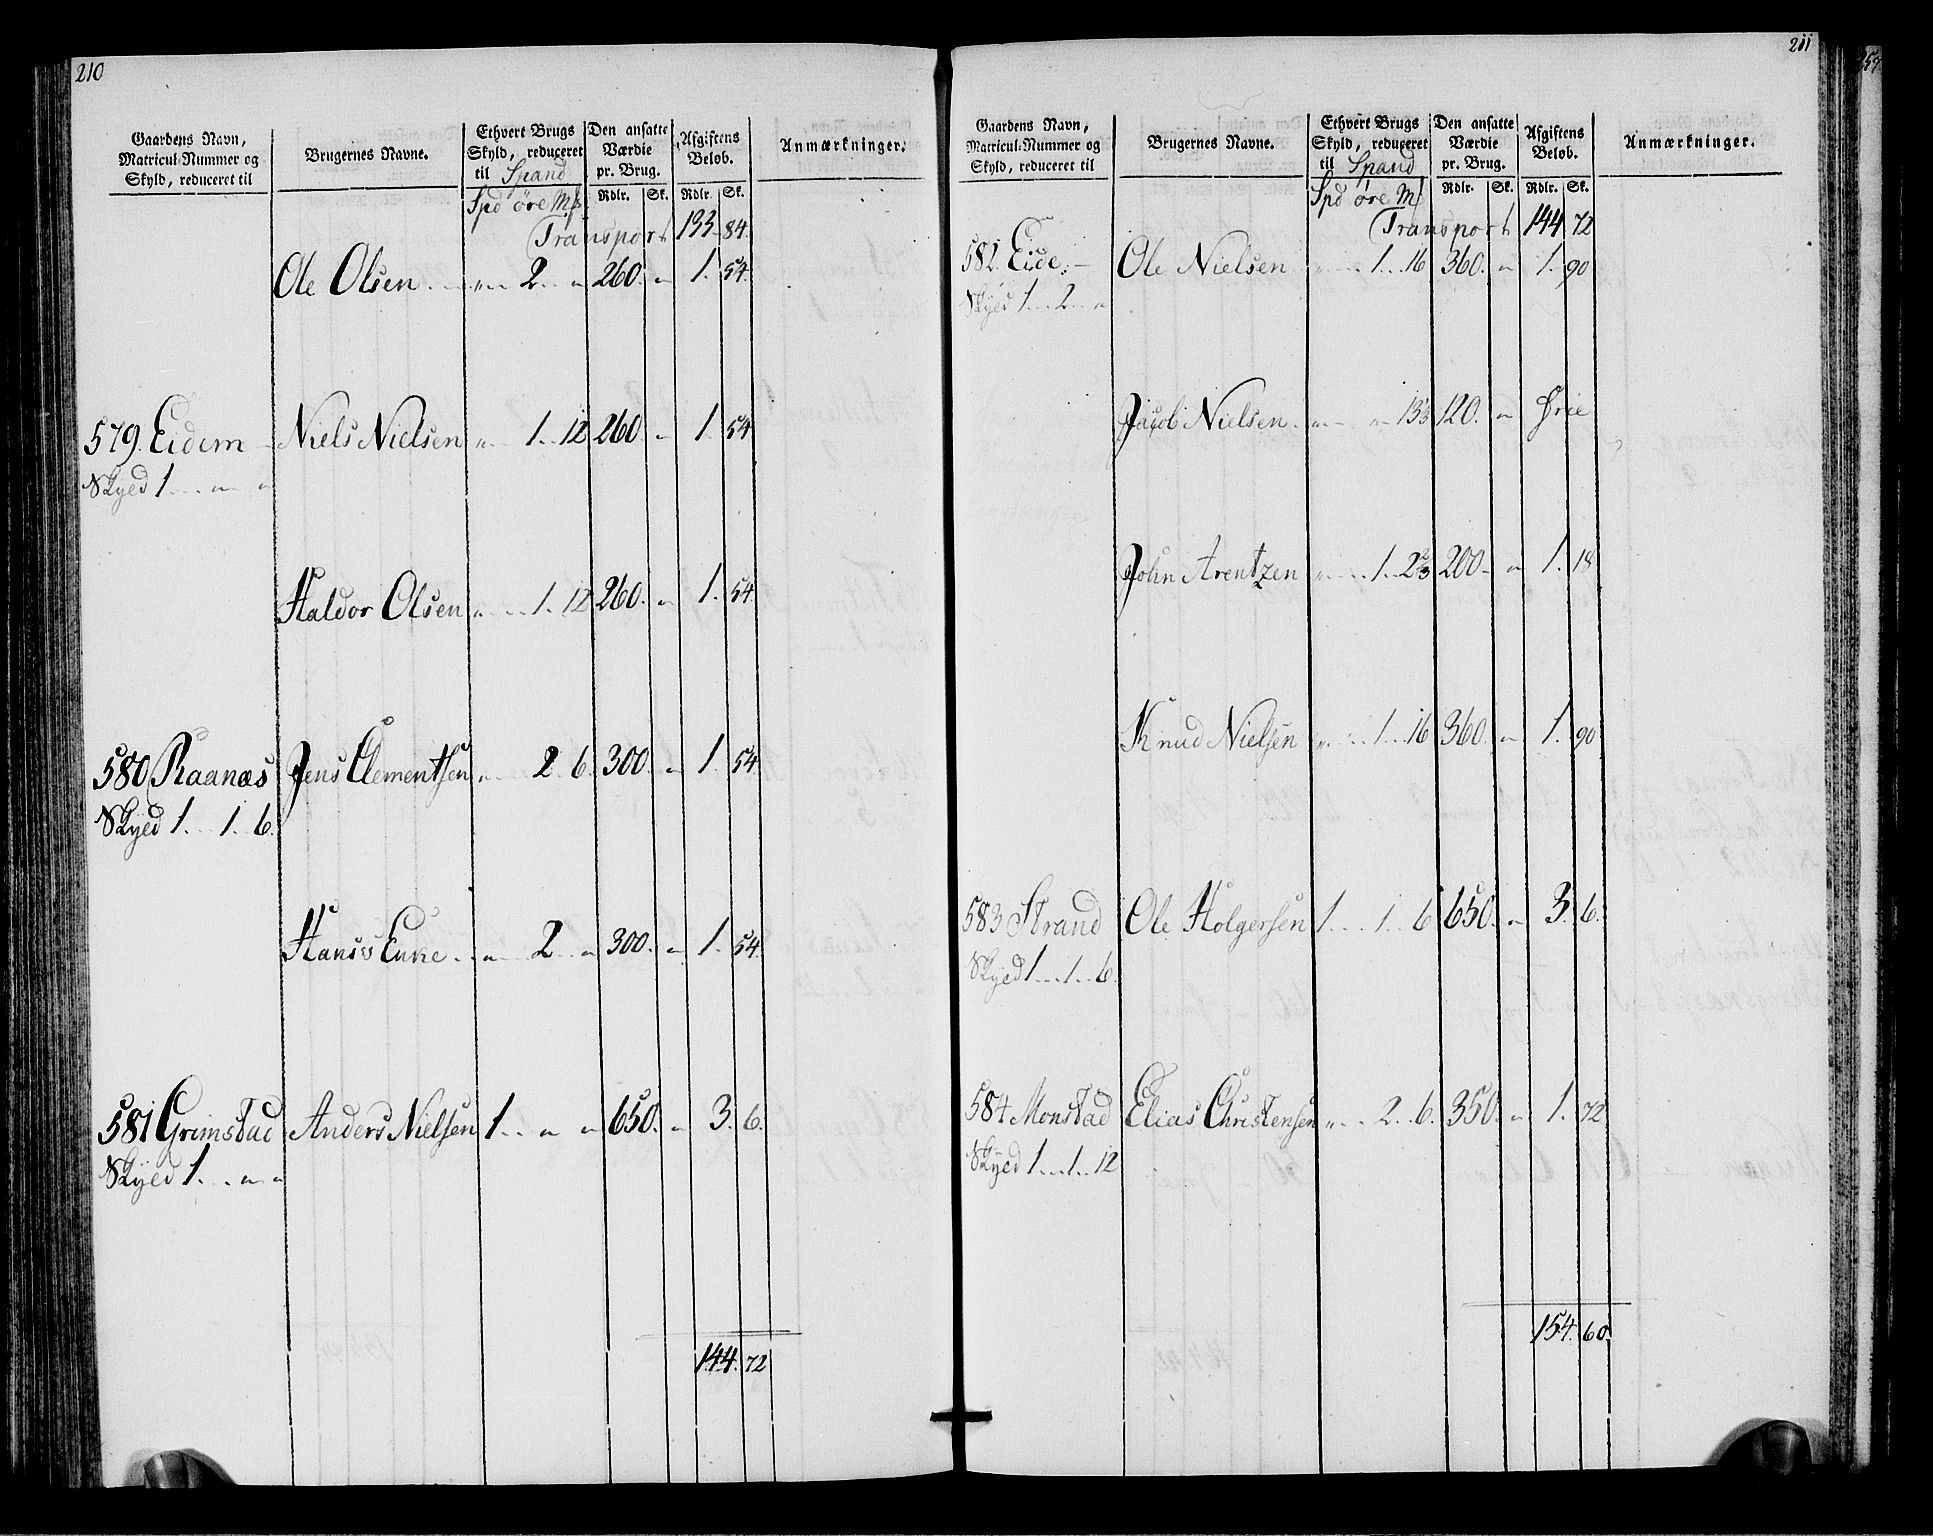 210
Gaardens Navn, Matricul-Nummer og Skyld, reduceret til | Brugernes Navne. | Ethvert Brugs Skyld, reduceret til Spand | Den ansatte Værdie pr. Brug. | Afgiftens Beløb. | Anmærkninger.
Spd øre Mk | Rdlr. | Sk. | Rdlr. | Sk.
Transport 133 84.
Ole Olsen . . „ 2 „ 260. „ 1. 54.
579. Eidem Niels Nielsen „ 1 . 12 260 „ 1. 54
Skyld 1 . . „ „
Haldor Olsen „ . . 1. 12 260. „ 1. 54.
580 Raanæs Jens Clementsen „ 2 6. 300. „ 1. 54
Skyld 1. . 1. 6.
Hans's Enke . . „ 2 . „ 300. „ 1. 54.
581 Grimstad Anders Nielsen 1 . . „ „ 650. „ 3. 6.
Skyld 1. . „ „
144. 72
211
Gaardens Navn, Matricul-Nummer og Skyld, reduceret til | Brugernes Navne. | Ethvert Brugs Skyld, reduceret til Spand | Den ansatte Værdie pr. Brug. | Afgiftens Beløb. | Anmærkninger.
Spd øre Mk | Rdlr. | Sk. | Rdlr. | Sk.
Transport 144 72
582. Eide. — Ole Nielsen „ . . 1 . . 16 360. „ 1. 90
Skyld 1 . . 2 . . „
Jacob Nielsen. „ „ 13 120. „ frie
John Arentzen „ . . 1 . . 2 200. „ 1. 18
Knud Nielsen „ . . 1 . . 16 360. „ 1. 90
583 Strand Ole Holgersen 1 . . 1 . 6 650. „ 3. 6.
Skyld 1 . . 1 . . 6.
584 Monstad Elias Christensen „ . . 2 . . 6. 350. „ 1. 72
Skyld 1 . . 1 . . 12
154. 60.